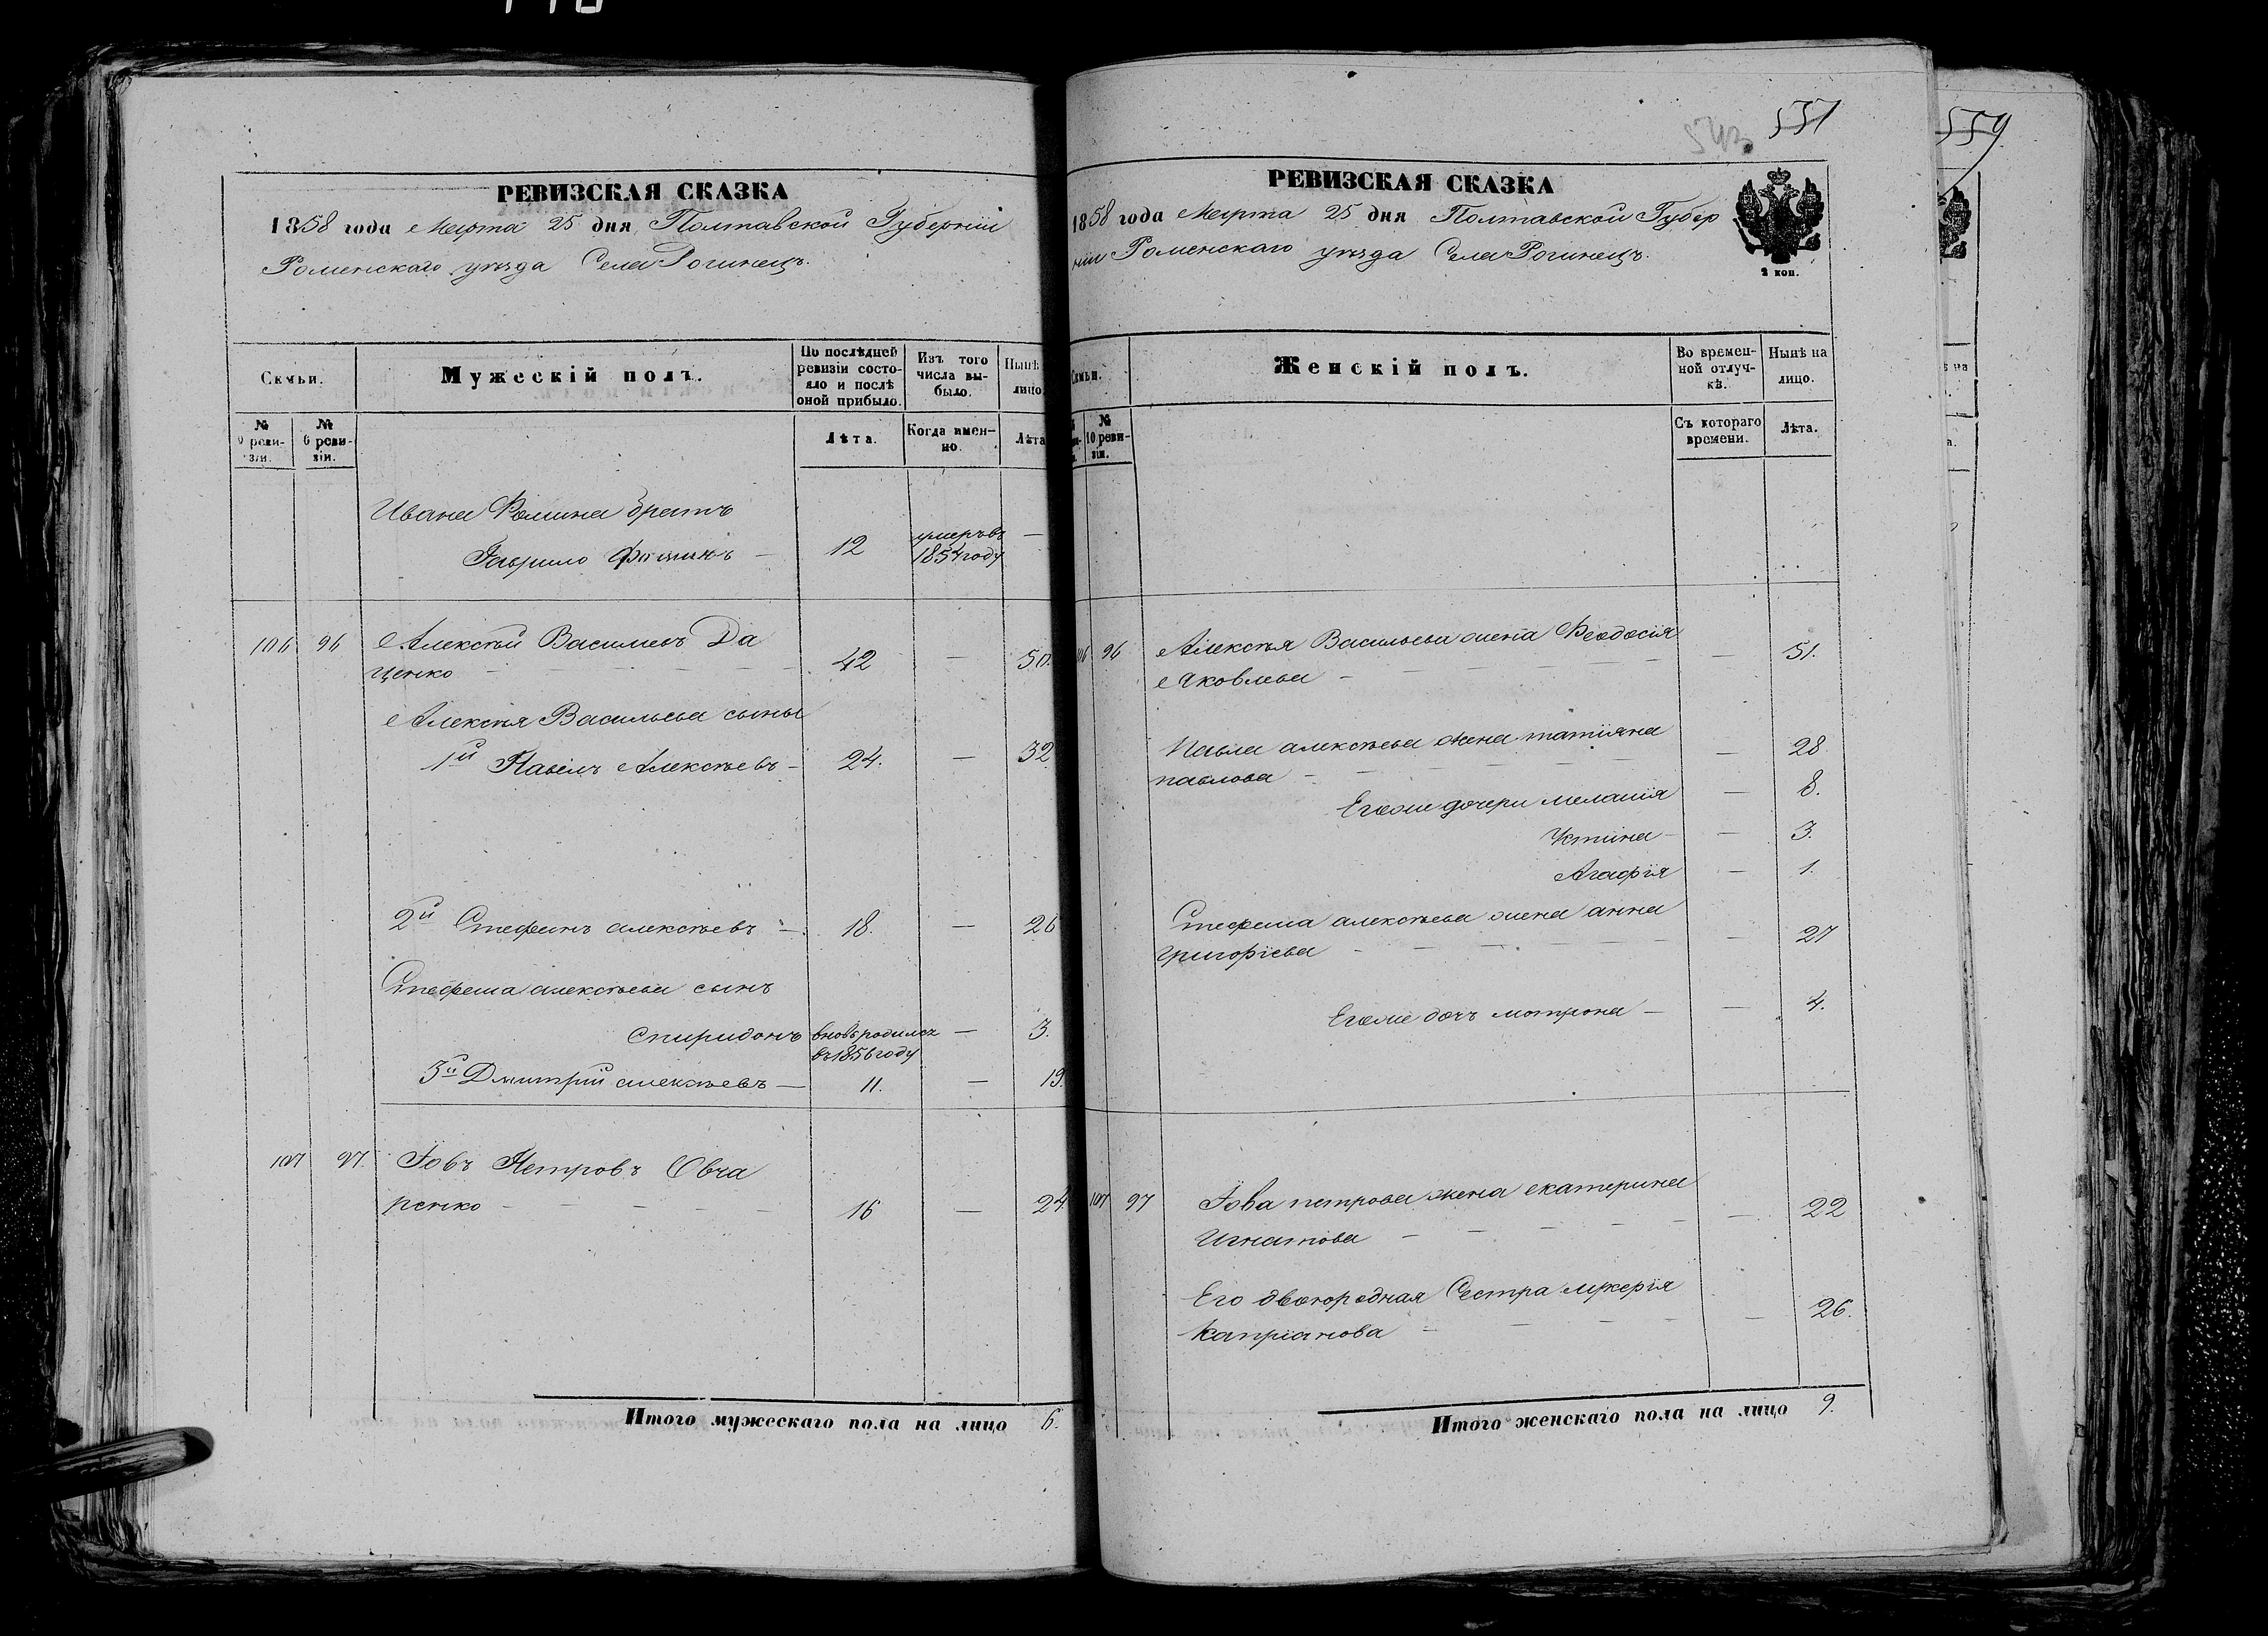 РЕВИЗСКАЯ СКАЗКА
1858 года Марта 25 дня Полтавской Губернии
Роменскаго уѣзда Села Рогинецъ.
Семьи.
Мужескій полъ.
По послѣдней ревизіи состояло и послѣ оной прибыло.
Изъ того числа выбыло.
Нынѣ лицо.
№ 9 ревизіи.
№ 10 ревизіи.
Лѣта.
Когда именно.
Лѣта
Ивана Фомина братъ
Гаврило Фоминъ — 12 умеръ въ 1854 году —
106 96 Алексѣй Васильевъ Да
ценко — 42 — 50.
Алексѣя Васильева сыны
1й Павелъ Алексѣевъ — 24. — 32
2й Стефанъ алексѣевъ — 18. — 26
Стефана алексѣева сынъ
Спиридонъ вновь родился въ 1856 году — 3.
3й Дмитрій алексѣевъ — 11. — 19.
107 97. Іовъ Петровъ Овча
ренко — 16 — 24
Итого мужескаго пола на лицо 6.
557
РЕВИЗСКАЯ СКАЗКА
1858 года Марта 25 дня Полтавской Губер
ніи Роменскаго уѣзда Села Рогинецъ.
2 коп.
Семьи.
Женскій полъ.
Во временной отлучкѣ.
Нынѣ на лицо.
№ 10 ревизіи.
Съ котораго времени.
Лѣта.
106 96 Алексѣя Васильева жена Феодосія
Яковлева — — 51.
Павла алексѣева жена татіяна
павлова — — 28.
Егоже дочери меланія — 8.
Устина — — 3.
Агафія — 1.
Стефана алексѣева жена анна
григоріева — — 27
Егоже дочь мотрона — — 4.
107 97 Іова петрова жена екатерина
Игнатова — — 22
Его двоюродная Сестра лукерія
Капріанова — — 26.
Итого женскаго пола на лицо 9.
559